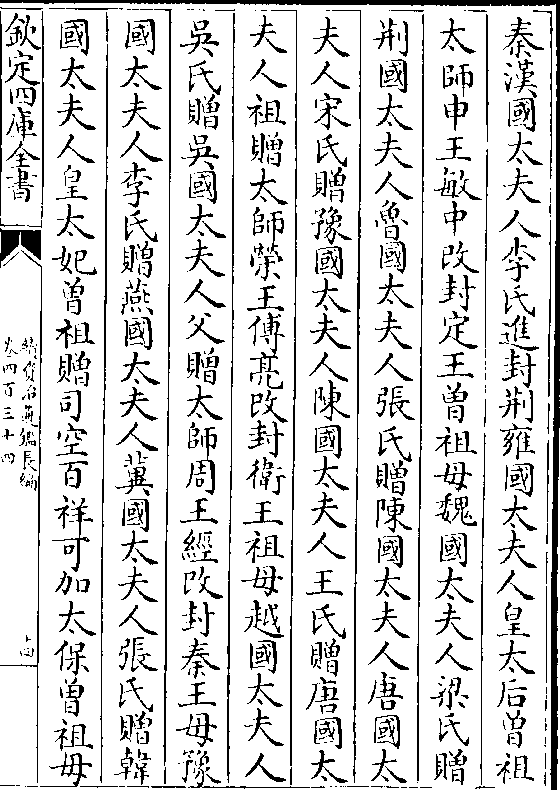 秦漢國太夫人李氏進封荆雍國太夫人皇太后曽祖
太師申王敏中改封定王曽祖母魏國太夫人梁氏贈
荆國太夫人魯國太夫人張氏贈陳國太夫人唐國太
夫人宋氏贈豫國太夫人陳國太夫人王氏贈唐國太
夫人祖贈太師榮王傅亮改封衛王祖母越國太夫人
吳氏贈吳國太夫人父贈太師周王經改封秦王母豫
國太夫人李氏贈燕國太夫人冀國太夫人張氏贈韓
國太夫人皇太妃曽祖贈司空百祥可加太保曽祖母
欽定四庫全書
續資治通鑑長編
卷四百三十四